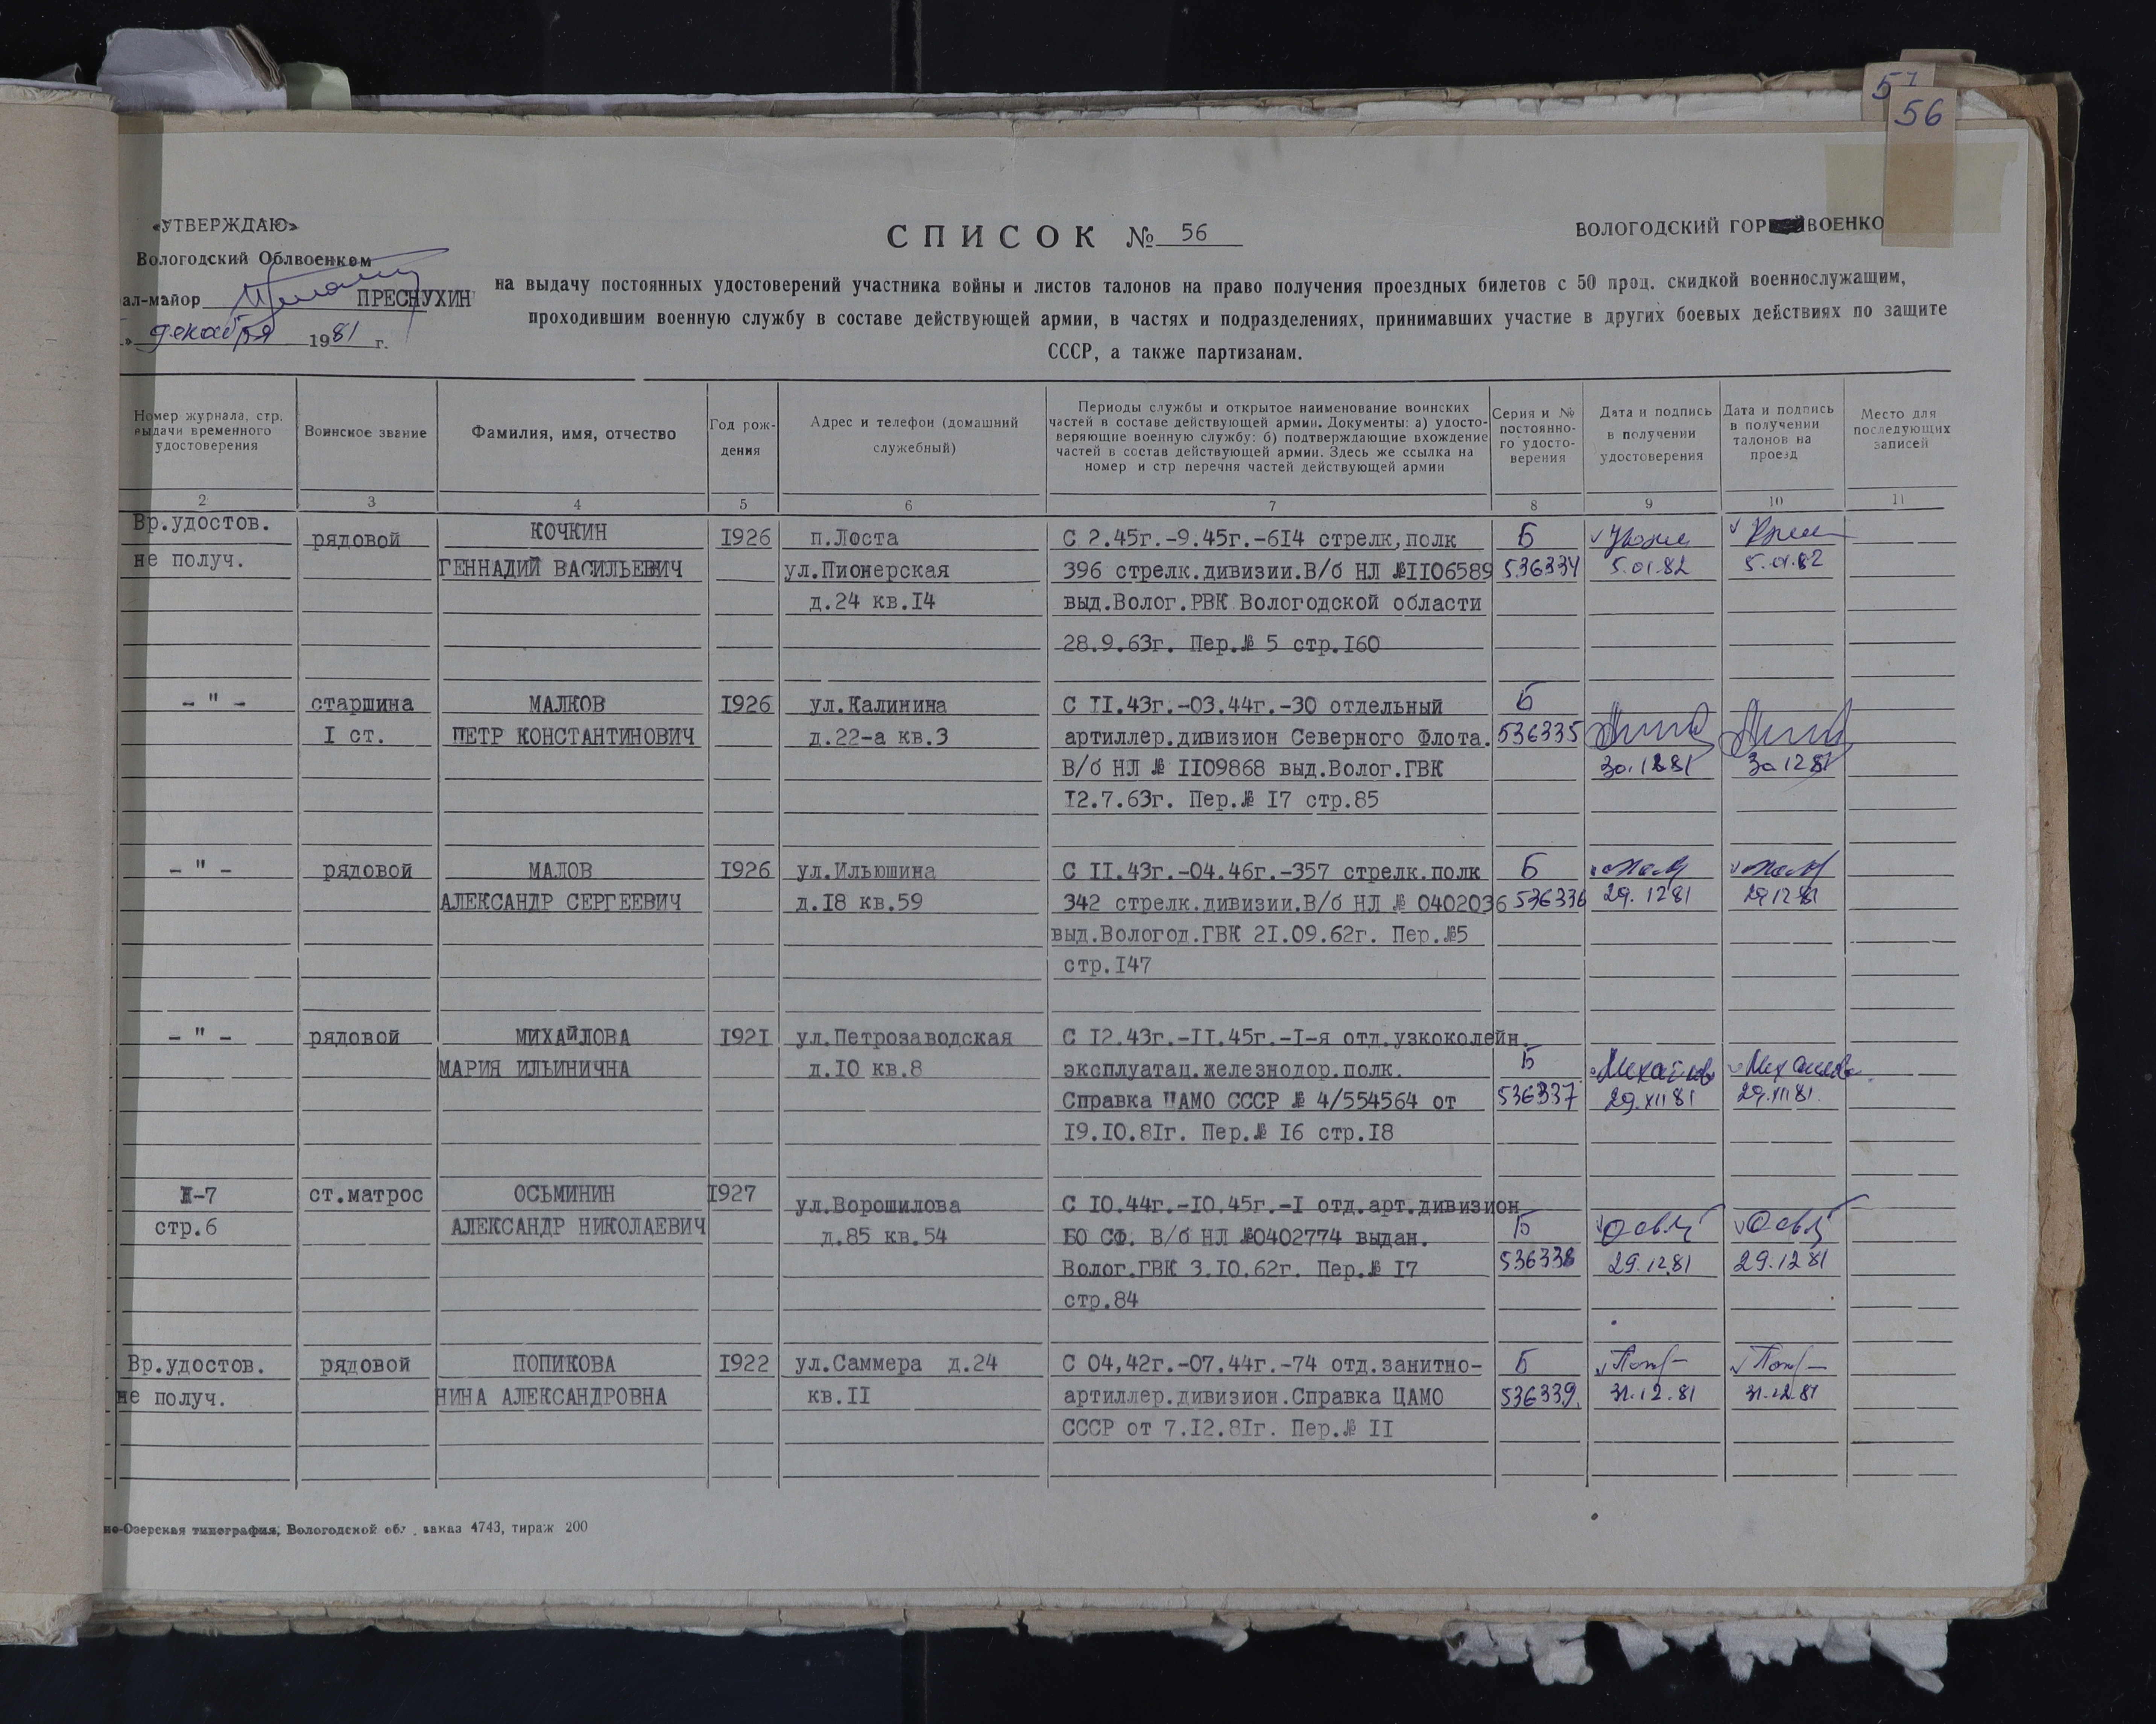 57
56
«УТВЕРЖДАЮ»
Вологодский Облвоенком
ал-майор ПРЕСНУХИН
» декабря 1981 г.
СПИСОК № 56
ВОЛОГОДСКИЙ ГОР ВОЕНКО
на выдачу постоянных удостоверений участника войны и листов талонов на право получения проездных билетов с 50 проц. скидкой военнослужащим,
проходившим военную службу в составе действующей армии, в частях и подразделениях, принимавших участие в других боевых действиях по защите
СССР, а также партизанам.
Номер журнала, стр. выдачи временного удостоверения
Воинское звание
Фамилия, имя, отчество
Год рож-дения
Адрес и телефон (домашний служебный)
Периоды службы и открытое наименование воинских
частей в составе действующей армии. Документы: а) удосто-
веряющие военную службу: б) подтверждающие вхождение
частей в состав действующей армии. Здесь же ссылка на
номер и стр перечня частей действующей армии
Серия и № постоянно-го удосто-верения
Дата и подпись в получении удостоверения
Дата и подпись в получении талонов на проезд
Место для последующих записей
2 3 4 5 6 7 8 9 10 11
Вр.удостов. рядовой КОЧКИН I926 п.Лоста С 2.45г.-9.45г.-6I4 стрелк,полк Б
не получ. ГЕННАДИЙ ВАСИЛЬЕВИЧ ул.Пионерская 396 стрелк.дивизии.В/б НЛ №II06589 536334 5.01.82 5.01.82
д.24 кв.I4 выд.Волог.РВК Вологодской области
28.9.63г. Пер.№ 5 стр.I60
- " - старшина МАЛКОВ I926 ул.Калинина С II.43г.-03.44г.-30 отдельный Б
I ст. ПЕТР КОНСТАНТИНОВИЧ д.22-а кв.3 артиллер.дивизион Северного Флота. 536335
В/б НЛ № II09868 выд.Волог.ГВК 30.12.81 30.12.81
I2.7.63г. Пер.№ I7 стр.85
- " - рядовой МАЛОВ I926 ул.Ильюшина С II.43г.-04.46г.-357 стрелк.полк Б
АЛЕКСАНДР СЕРГЕЕВИЧ д.I8 кв.59 342 стрелк.дивизии.В/б НЛ № 0402036 536336 29.12.81 29.12.81
выд.Вологод.ГВК 2I.09.62г. Пер.№5
стр.I47
- " - рядовой МИХАЙЛОВА I92I ул.Петрозаводская С I2.43г.-II.45г.-I-я отд.узкоколейн.
МАРИЯ ИЛЬИНИЧНА д.I0 кв.8 эксплуатац.железнодор.полк. Б Михайлова Михайлова
Справка ЦАМО СССР № 4/554564 от 536337 29.XII 81 29.XII 81.
I9.I0.8Iг. Пер.№ I6 стр.I8
-7 ст.матрос ОСЬМИНИН I927 ул.Ворошилова С I0.44г.-I0.45г.-I отд.арт.дивизион
стр.6 АЛЕКСАНДР НИКОЛАЕВИЧ д.85 кв.54 БО СФ. В/б НЛ №0402774 выдан. Б
Волог.ГВК 3.I0.62г. Пер.№ I7 536338 29.12.81 29.12.81
стр.84
Вр.удостов. рядовой ПОПИКОВА I922 ул.Саммера д.24 С 04,42г.-07.44г.-74 отд.занитно- Б
не получ. НИНА АЛЕКСАНДРОВНА кв.II артиллер.дивизион.Справка ЦАМО 536339. 31.12.81 31.12.81
СССР от 7.I2.8Iг. Пер.№ II
но-Озерская типография, Вологодской обл., заказ 4743, тираж 200